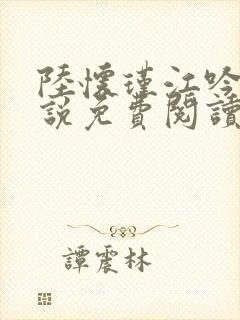 陸懷瑾江吟
說免費閱讀
譚震林